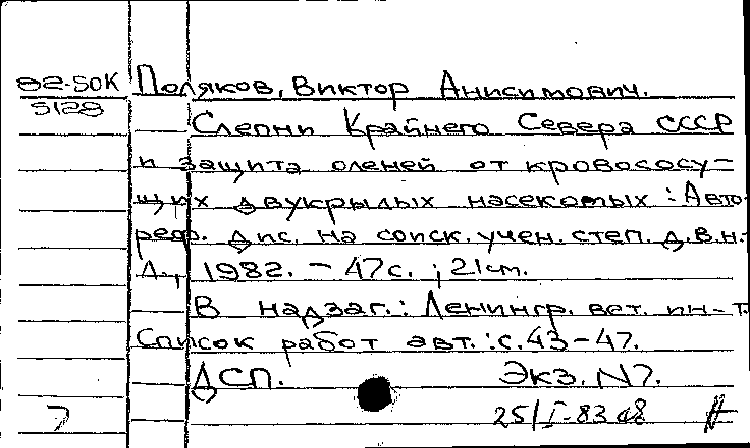 82-50К Поляков, Виктор Анисимович.
5128
Слепни Крайнего Севера СССР
и защита оленей от кровососу-
щих двукрылых насекомых : Авто-
реф. дис. на соиск. учен. степ. д.в.н.-
Л., 1982. - 47с. ; 21см.
В надзаг.: Ленингр. вет. ин-т.
Список работ авт.: с.43-47.
ДСП. Экз. N7.
7 25/I-83